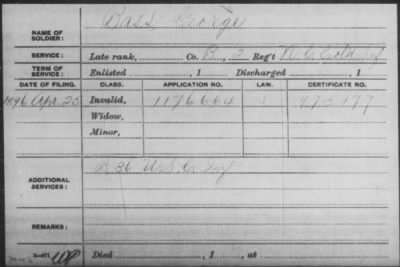 NAME OF SOLDIER: Bass, George
SERVICE: Late rank, Co. B, 2 Reg't N. C. Cold Inf
TERM OF SERVICE: Enlisted , 1 Discharged , 1
DATE OF FILING. CLASS. APPLICATION NO. LAW. CERTIFICATE NO.
1896 Apr. 25 Invalid, 1176664 975177
Widow,
Minor,
ADDITIONAL SERVICES: B 36 U.S.C. Inf
REMARKS:
Died , 1 , at